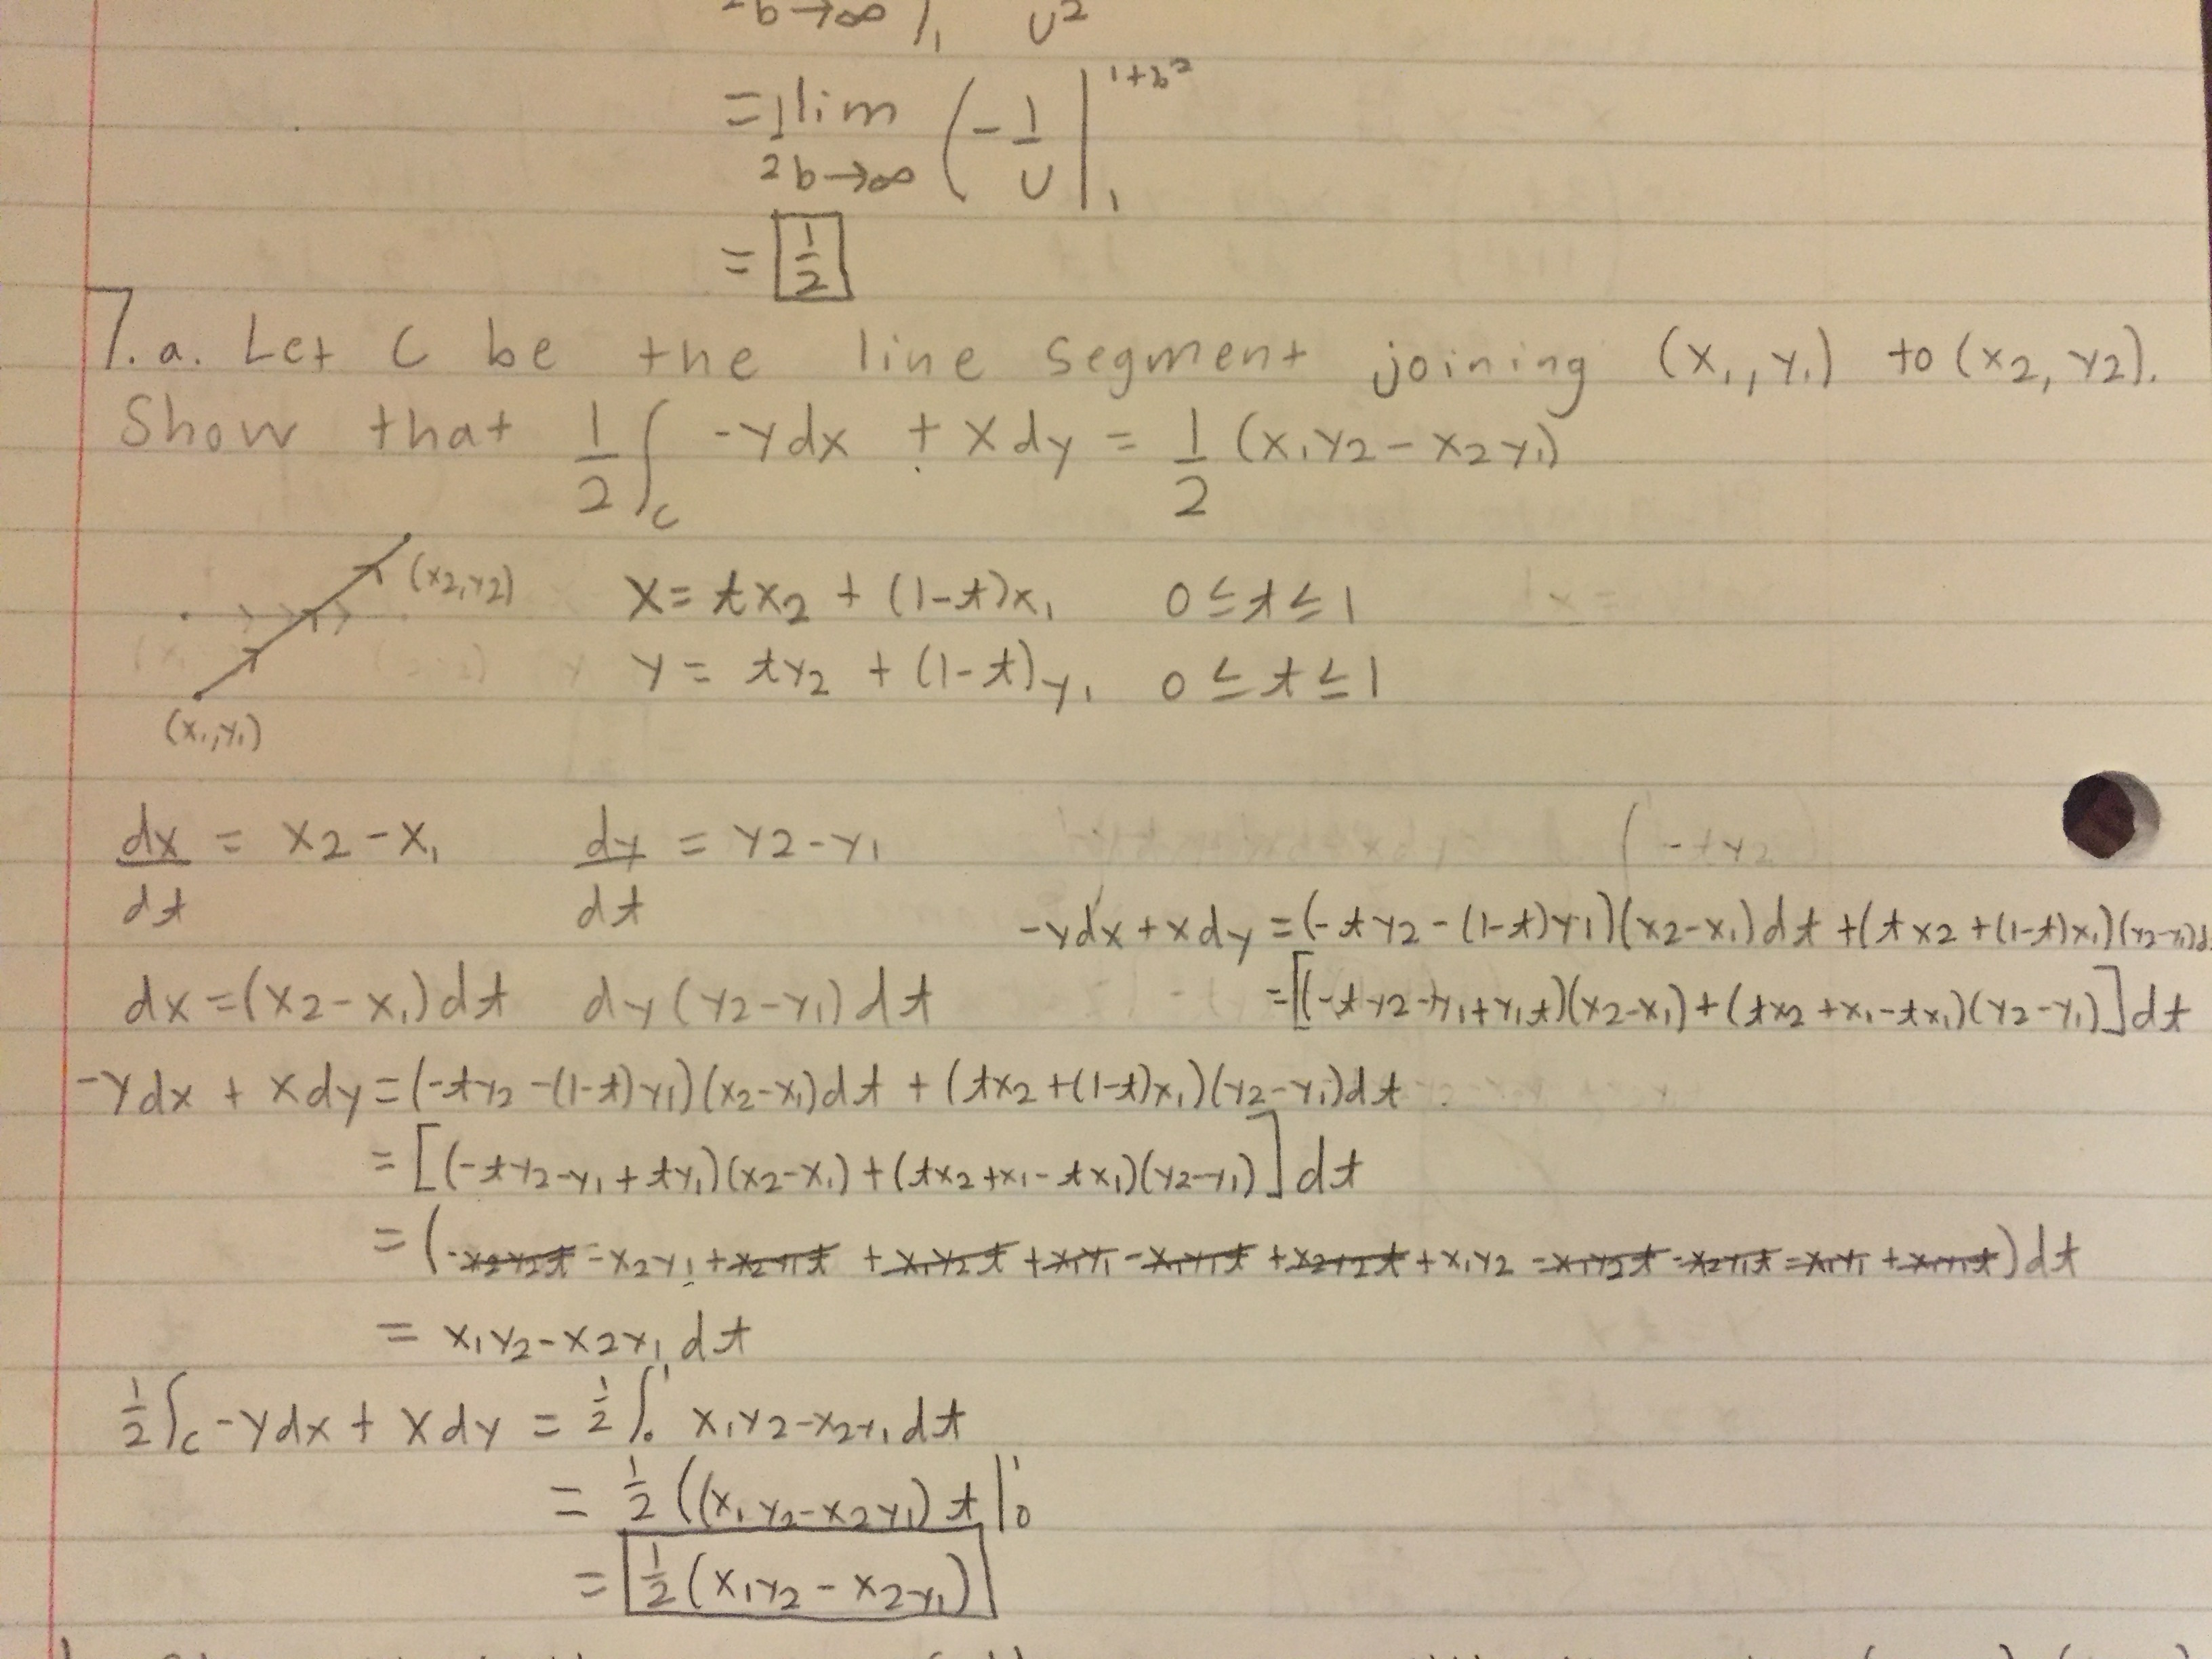 2 b→∞ ∫₁ u²
= 1 lim (-1/u |₁^(1+b²)
2 b→∞
= 1/2
7.a. Let C be the line segment joining (x₁, y₁) to (x2, y2).
Show that 1/2 ∫_C -ydx + xdy = 1/2 (x₁y2 - x2y₁)
(x2,y2)
x = tx2 + (1-t)x₁ 0 ≤ t ≤ 1
y = ty2 + (1-t)y₁ 0 ≤ t ≤ 1
(x₁,y₁)
dx/dt = x2 - x₁ dy/dt = y2 - y₁
(-ty2
-ydx + xdy = (-ty2 - (1-t)y1)(x2-x₁)dt + (tx2 + (1-t)x₁)(y2-y₁)d
= [(-ty2 - y₁ + y₁t)(x2-x₁) + (tx2 + x₁ - tx₁)(y2-y₁)]dt
dx = (x2-x₁)dt dy (y2-y₁)dt
-ydx + xdy = (-ty2 - (1-t)y1)(x2-x₁)dt + (tx2 + (1-t)x₁)(y2-y₁)dt
= [(-ty2-y₁+ty₁)(x2-x₁) + (tx2+x₁-tx₁)(y2-y₁)]dt
= (-x2y2t - x2y₁ + x2y₁t + x₁y2t + x₁y₁ - x₁y₁t + x2y2t + x₁y2 - x₁y2t - x2y₁t - x₁y₁ + x₁y₁t)dt
= x₁y2 - x2y₁ dt
1/2 ∫_C -ydx + xdy = 1/2 ∫₀¹ x₁y2 - x2y₁ dt
= 1/2 ((x₁y2 - x2y₁) t |₀¹
= 1/2 (x₁y2 - x2y₁)